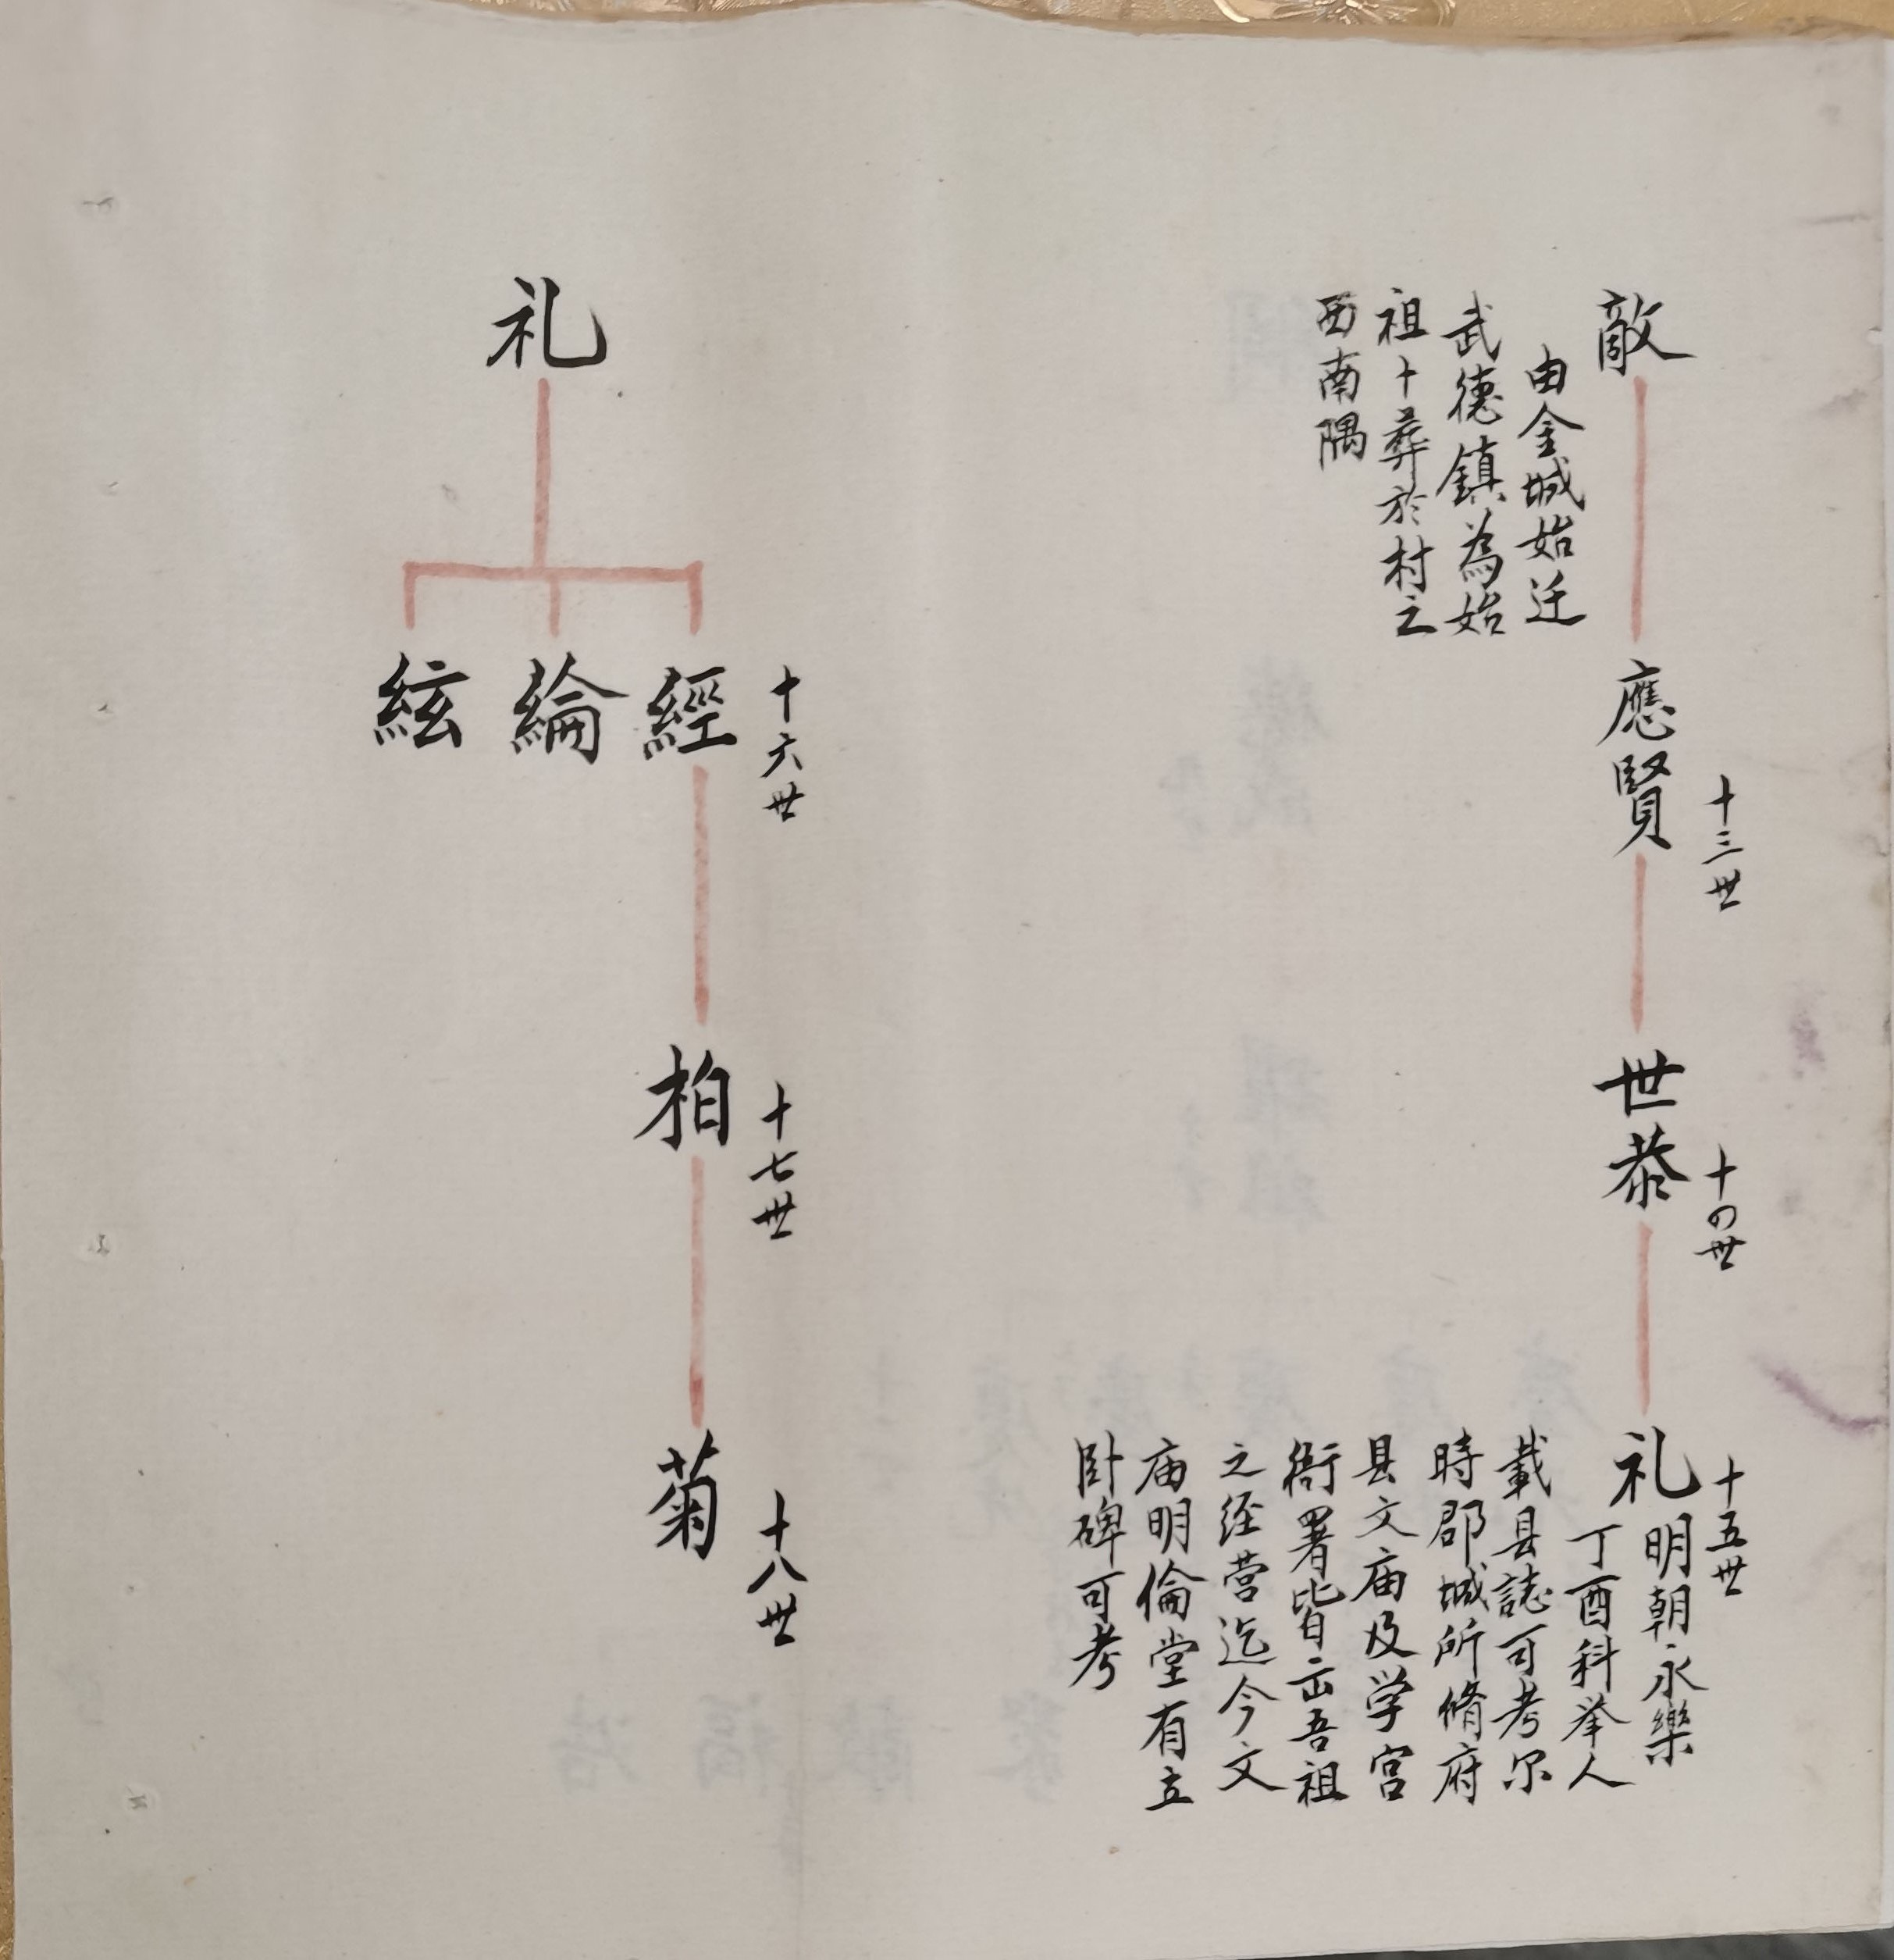 敵
由金城始迁
武德鎮為始
祖卜葬於村之
西南隅
十三世
應賢
十四世
世恭
十五世
礼
明朝永樂
丁酉科举人
載县誌可考尔
時郡城所脩府
县文庙及学宫
衙署皆吾祖
之经营迄今文
庙明倫堂有立
卧碑可考
礼
十六世
經
綸
絃
十七世
柏
十八世
菊